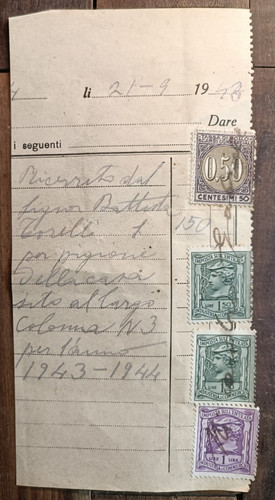 li 21-9 1943
Dare
i seguenti
Ricevuto dal
signor Battista
Corelli £ 150
per pigione
Della casa
sito al largo
Colonna N. 3
per l'anno
1943-1944
0.50
CENTESIMI 50
IMPOSTA SULL'ENTRATA
LIRE 1.50
IMPOSTA SULL'ENTRATA
LIRE
IMPOSTA SULL'ENTRATA
LIRE 1 LIRE